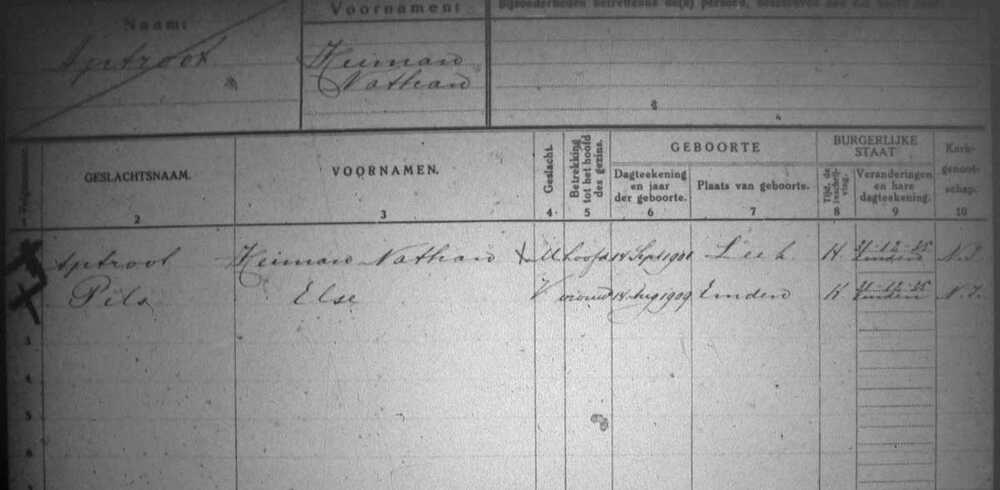 Naam:
Voornamen:
Bijzonderheden betreffende de(n) persoon,
Aptroot
Heiman
Nathan
GESLACHTSNAAM.
VOORNAMEN.
Geslacht.
Betrekking tot het hoofd des gezins.
GEBOORTE
Dagteekening en jaar der geboorte.
Plaats van geboorte.
BURGERLIJKE STAAT
Tijd. de inschrijving.
Veranderingen en hare dagteekening.
Kerkgenootschap.
1 2 3 4 5 6 7 8 9 10
Aptroot Heiman Nathan M hoofd 14 Sept 1901 H 21-12-35 Emden N.I.
Pels Else V vrouw 14 Aug 1909 Emden H 21-12-35 Emden N.I.
3
4
5
6